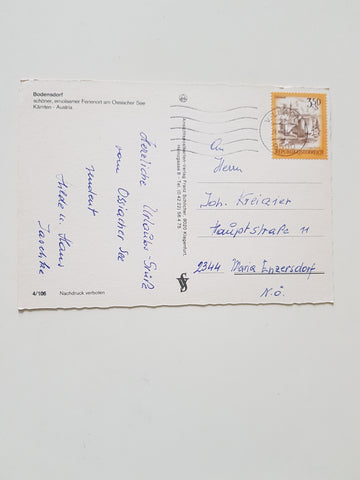 Bodensdorf
schöner, erholsamer Ferienort am Ossiacher See
Kärnten - Austria
Herzliche Urlaubs-Grüße
vom Ossiacher See
sendent
Hilde u. Hans
Jaschke
4/106 Nachdruck verboten
Ansichtskarten-Verlag Franz Schilcher, 9020 Klagenfurt,
Tel. (0 42 22) 56 4 75
3.50
REPUBLIK ÖSTERREICH
An
Herrn
Joh. Kreiazer
Hauptstraße 11
2344 Maria Enzersdorf
N.Ö.